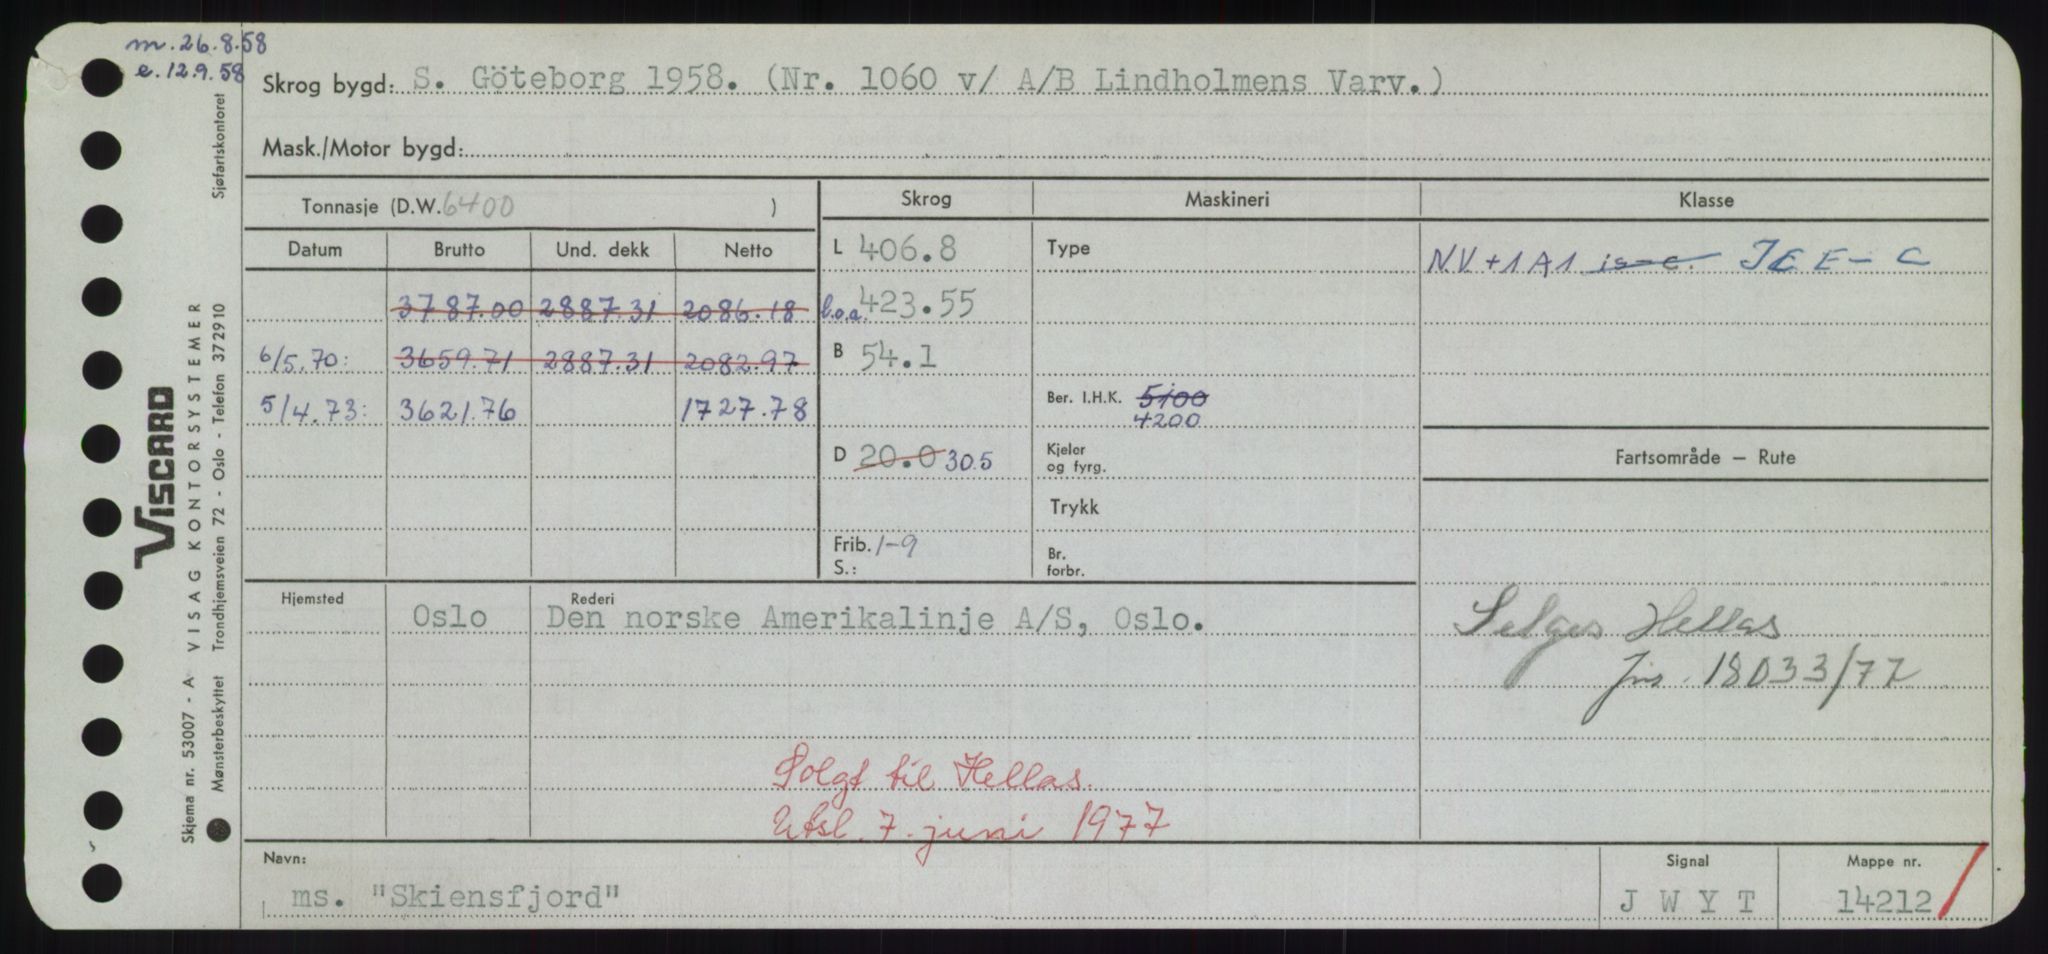 m. 26.8.58
e. 12.9.58
Skrog bygd: S. Göteborg 1958. (Nr. 1060 v/ A/B Lindholmens Varv.)
Mask./Motor bygd:
Tonnasje (D.W. 6400 ) Skrog Maskineri Klasse
Datum Brutto Und. dekk Netto L 406.8 Type NV+1A1 is-c. ICE-C
3787.00 2887.31 2086.18 l.o.a. 423.55
6/5.70: 3659.71 2887.31 2082.97 B 54.1
5/4.73: 3621.76 1727.78 Ber. I.H.K. 5100
4200
D 20.0 30.5 Kjeler og fyrg. Fartsområde – Rute
Trykk
Frib. 1-9 Br. forbr.
S.:
Hjemsted Oslo Rederi Den norske Amerikalinje A/S, Oslo.
Selges Hellas
Jnr. 18033/77
Solgt til Hellas.
Utsl. 7. juni 1977
Navn: Signal Mappe nr.
ms. "Skiensfjord" J W Y T 14212
Skjema nr. 53007 - A VISAG KONTORSYSTEMER
Mønsterbeskyttet Trondhjemsveien 72 - Oslo - Telefon 372910 Sjøfartskontoret
VISCARD